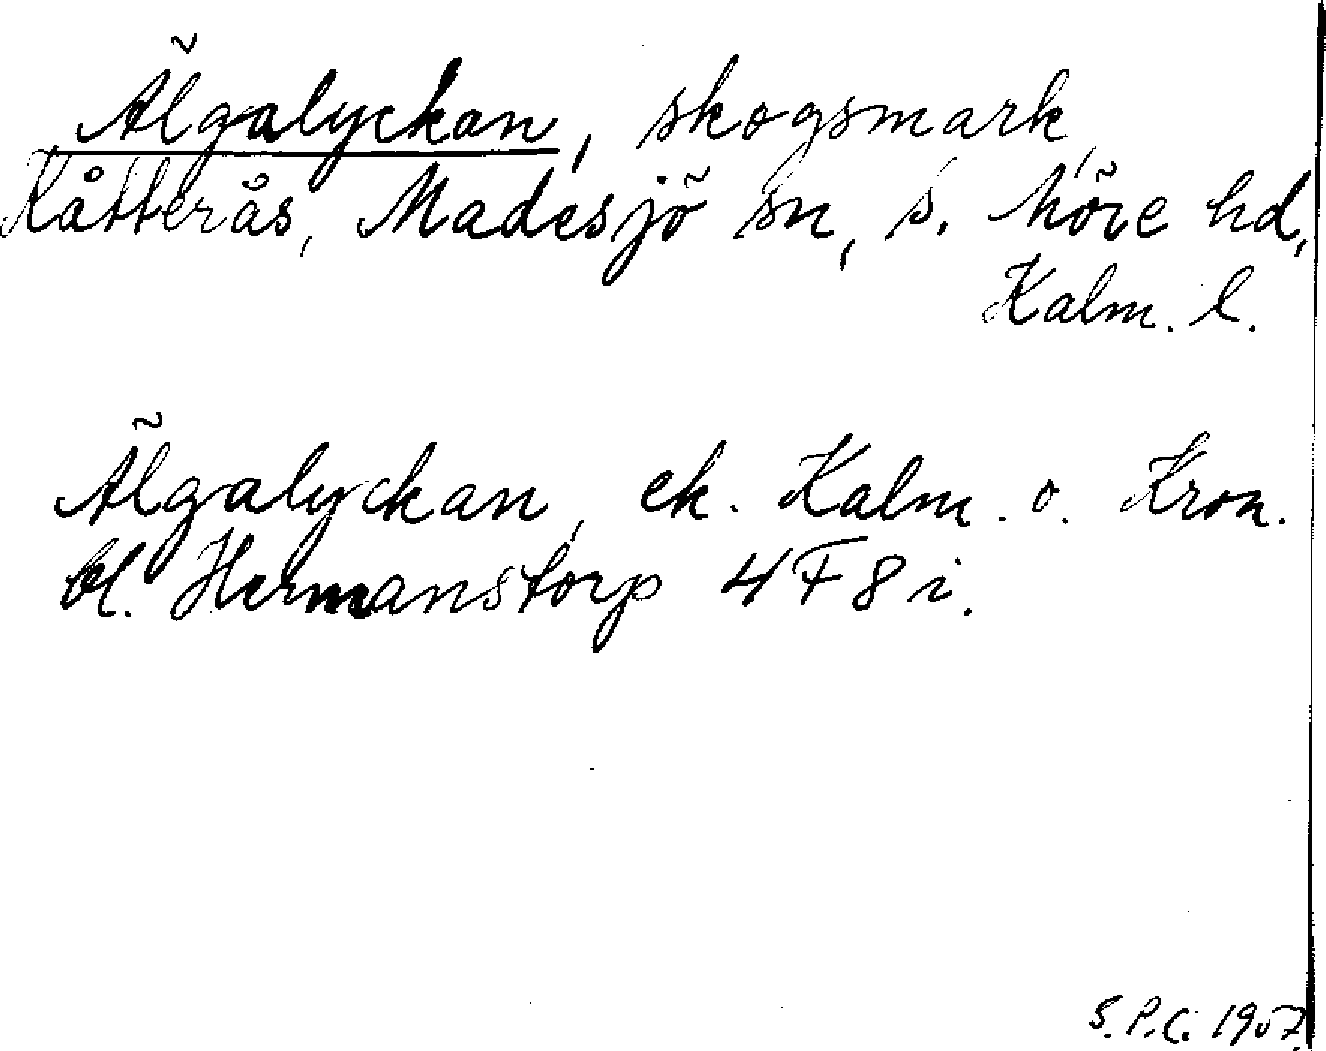 Älgalyckan, skogsmark,
Kåtterås, Madesjö sn, s. Möre hd,
Kalm. l.
Älgalyckan, ek. Kalm. o. Kron.
bl. Hermanstorp 4F8i.
S.P.C. 1957.